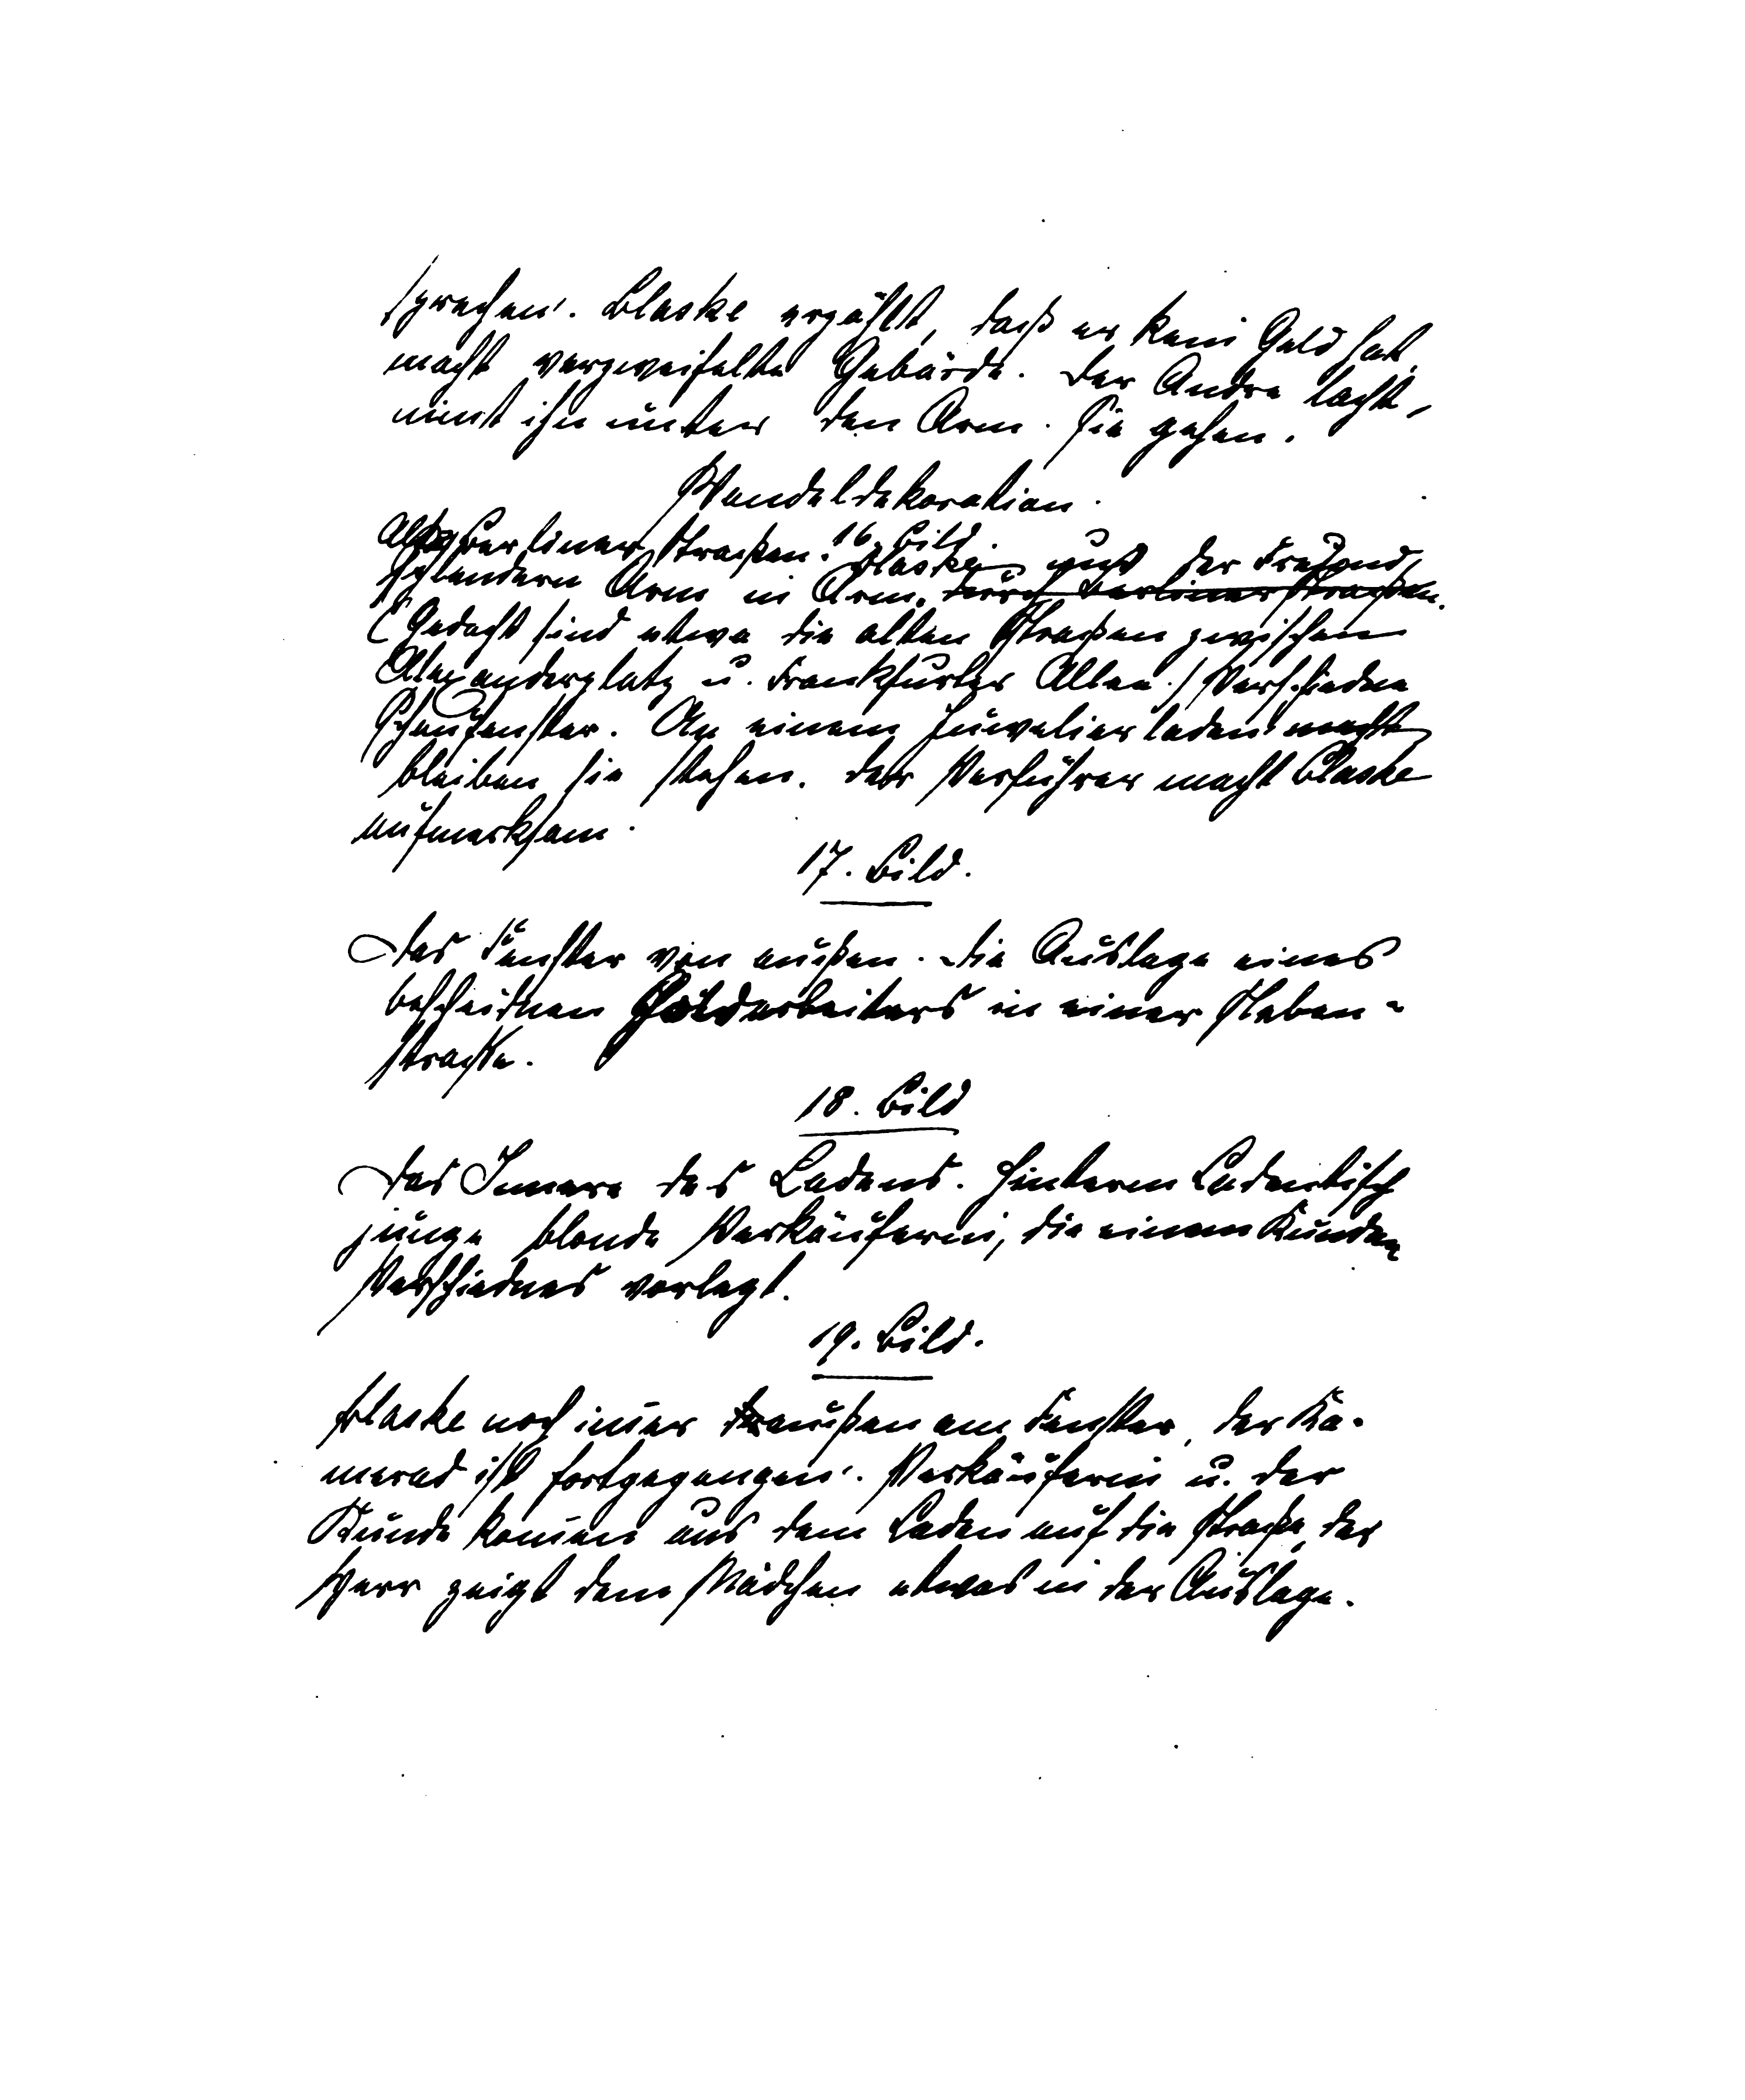 sprechen. Blaske erzählt, daß er kein Geld hat,
macht verzweifelte Gebärde. Der Andre lacht,
nimt ihn unter den Arm. Sie gehen.
Wandeldekoration.
16. Bild.
Alte Berliner Straßen. Blaske und der Freund
schlendern Arm in Arm. durch Berliner Straßen.
(Gedacht sind etwa die alten Straßen zwischen
Alexanderplatz u. Frankfurter Allee.) Verschiedne
Schaufenster. An einem Juwelierladen macht
bleiben sie stehen. Der Verführer macht Blaske
aufmerksam.
17. Bild.
Das Fenster von außen. Die Auslage eines
bescheidnen Goldarbeiters in einer Neben-
straße.
18. Bild
Das Innere des Ladens. Hinterm Ladentisch
junge blonde Verkäuferin, die einem Kunden
Verschiednes vorlegt.
19. Bild.
Blaske noch imer draußen am Fenster, der Ka-
merad ist fortgegangen. Verkäuferin u. der
Kunde komen aus dem Laden auf die Straße, der
Herr zeigt dem Mädchen etwas in der Auslage.